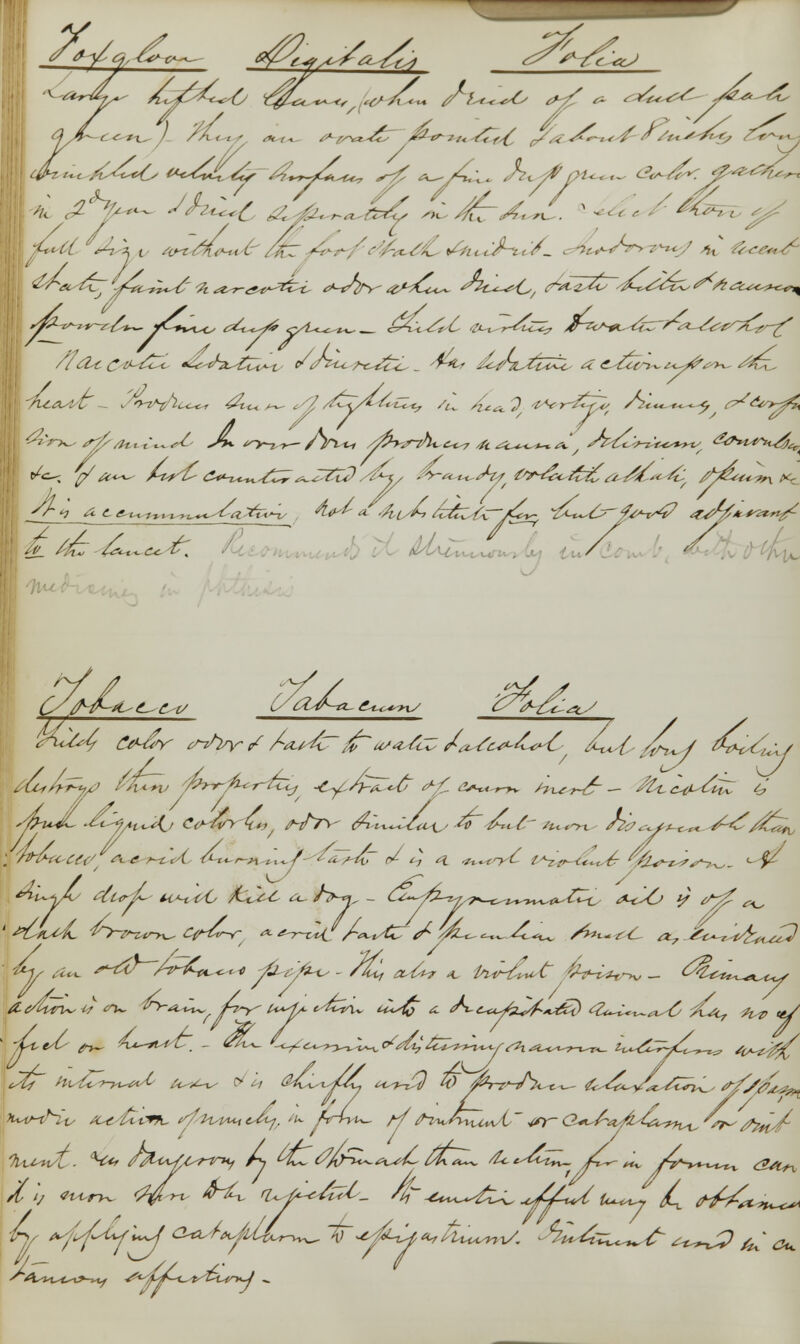 Foxglove Digitalis Folia
Large tufted leaves, (when dried of a dull pale
green) They are ovate pointed & about 8 inches long
wrinkled velvety surfaces of a fine deep green color. gathered
in 2d Year & dried seperately in the sun. Select those of
full size without the foot stalk & midrib - Inodorous in recent
state, faint narcotic odor when dried, taste bitter & nauseous
powder fine deep green - Yield virtues to water & alcohol
Narcotic Sedative & diuretic - Has sedative action upon the
heart - Produces sense of tightness in head, vertigo, dimness, & confu
sion of mind In over doses produces nausea, delirium, convulsions
&c. & are best counteracted by brandy, volatile alkali, opium &c
It is accummulative, Not a substitute for, but good adjuvant
to the lancet. Recommends it strenuously in comb. with other
medicines in phthisis
Tobacco Tabacum Folia
Yields color odor & taste to water & alcohol, but long boiling
destroys these properties, extract of course inert - Nicotin is
pure liquid colorless, odor similar to but more disagreeable than
tobacco, acrid burning taste & is a most violent poison. A
single drop will kill a dog - Empyreumatic oil is of a
dark brown color, acrid taste & peculiar smell as evidenced
by an old tobacco pipe - This also a violent poison - Primary
action is on brain, for injection into a decapitated animal has no ef
fect on heart. - The excessive & distressing nausea interferes with
its internal use & is chiefly used to produce relaxation of spasm
modic action in form of ointment or Cataplasm or oint
ment. Less dangerous by the Stomach than rectum, for in former case
it is more sure to be rejected - Its emetic effect may be obtained
by applying cataplasm to epigastrium. Ointment used in cu
taneous affections -